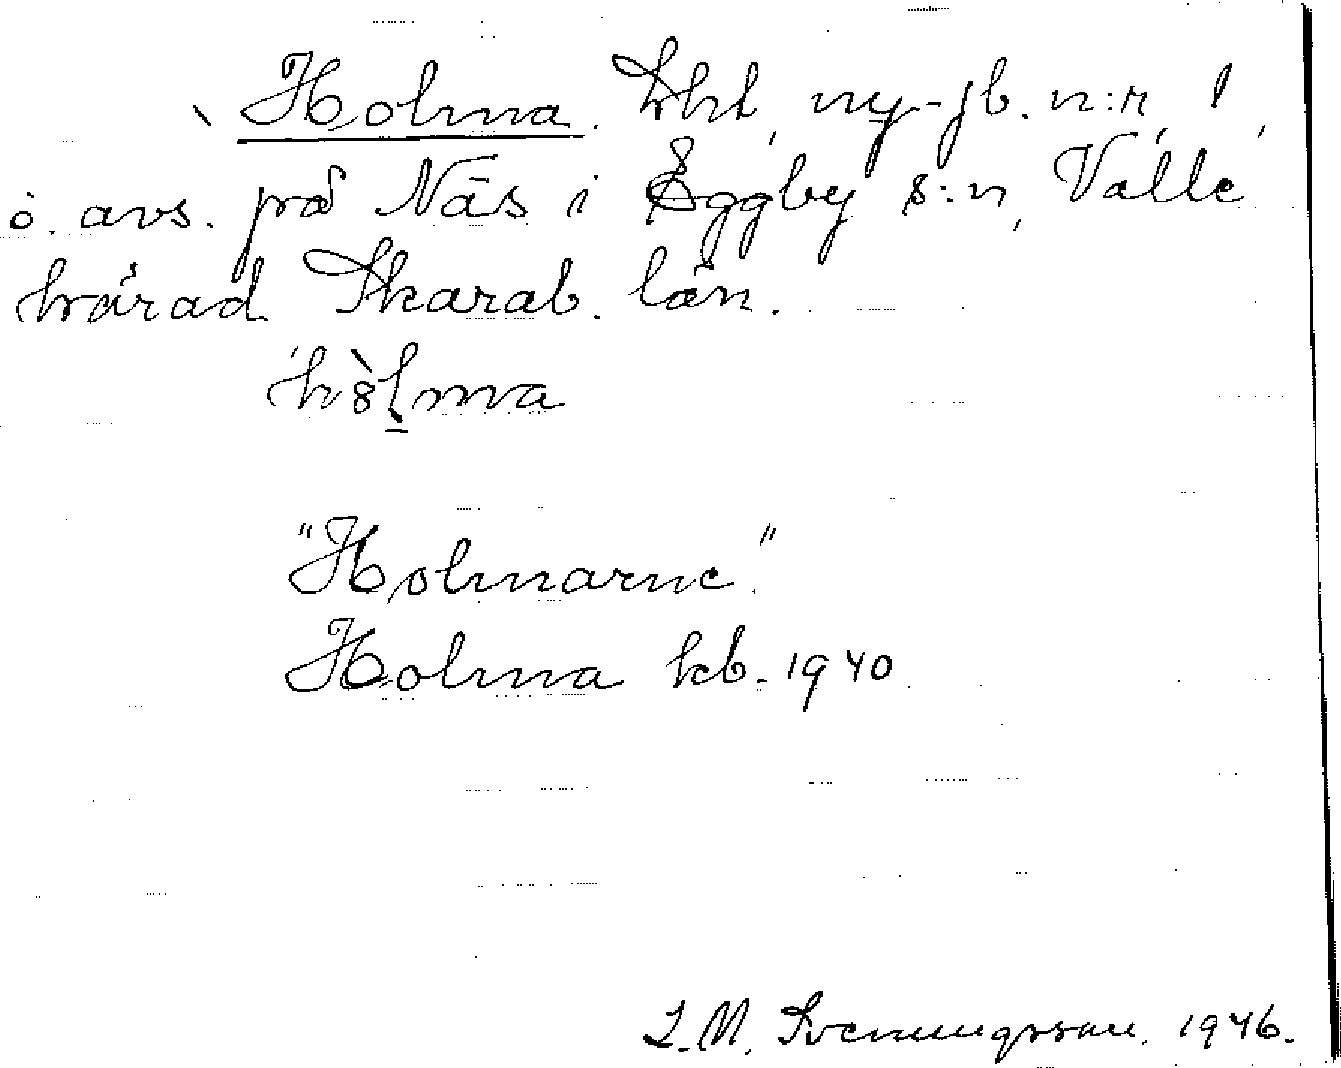 Holma. Skl, ny-jb. n:r 1,
ö. avs. på Näs i Eggby s:n, Valle
härad Skarab. län.
"Holmarne".
Holma kb. 1940
L. M. Svenungsson. 1946.